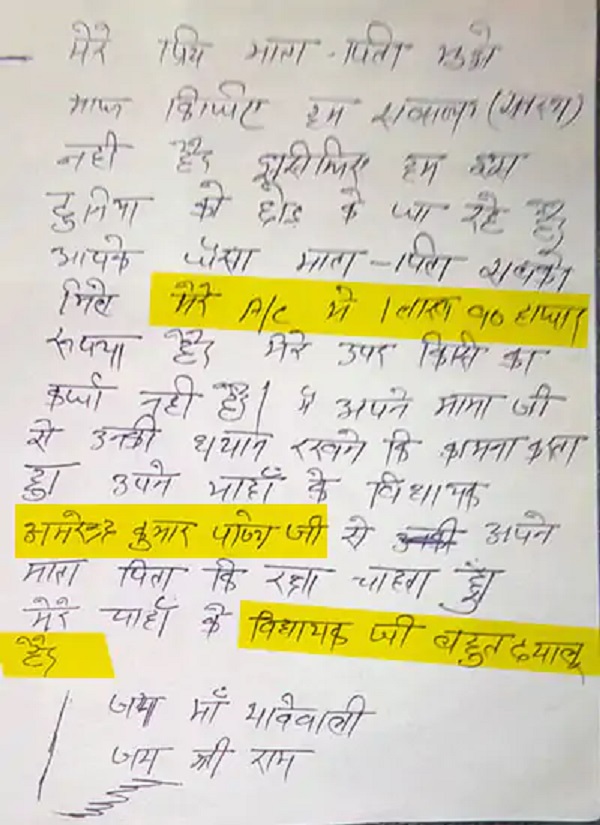 मेरे प्रिय माता - पिता मुझे
माफ किजीए हम
नही हैइ इसीलिए हम इस
दुनिया को छोड के जा रहे हैइ
आपके जैसा माता - पिता सबको
मिले मेरे A/C मे 1 लाख 90 हाजार
रूपया हैइ मेरे उपर किसी का
कर्जा नही हैइ। मै अपने मामा जी
से उनकी धयान रखने कि कामना करता
हुँ। उपने याहाँ के विधायक
अमरेन्द्र कुमार पाण्डेय जी से अपने
माता पिता कि रक्षा चाहता हुँ।
मेरे याहाँ के विधायक जी बहुत दयालू
हैइ
जय माँ थावेवाली
जय श्री राम